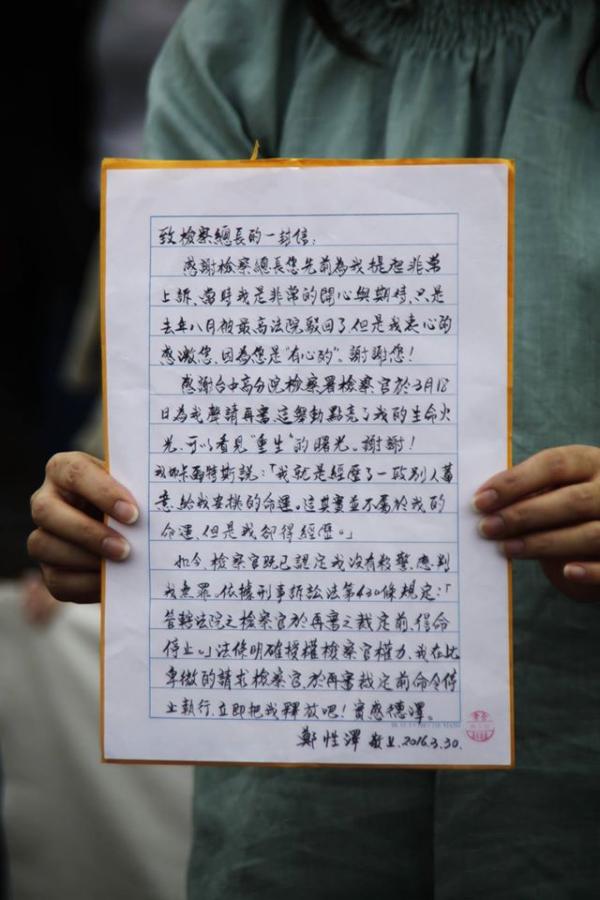 致檢察總長的一封信：
感謝檢察總長您先前為我提起非常
上訴、當時我是非常的開心與期待、只是
去年八月被最高法院駁回了、但是我衷心的
感激您、因為您是“有心的”。謝謝您！
感謝台中高分院檢察署檢察官於3月18
日為我聲請再審、這舉動點亮了我的生命火
光、可以看見“重生”的曙光。謝謝！
西特斯說：「我就是經歷了一致別人蓄
意、給我安排的命運。這其實並不屬於我的
命運、但是我卻得經歷。」
如今、檢察官既已認定我沒有殺警、應判
我無罪。依據刑事訴訟法第430條規定：「
管轄法院之檢察官於再審之裁定前、得命
停止。」法條明確授權檢察官權力、我在此
卑微的請求檢察官、於再審裁定前命令停
止執行、立即把我釋放吧！實感德澤。
鄭性澤 敬上.2016.3.30.